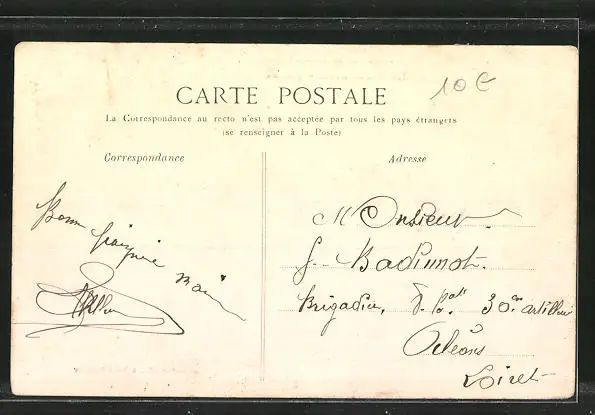 10 €
CARTE POSTALE
La Correspondance au recto n'est pas acceptée par tous les pays étrangers
(se renseigner à la Poste)
Correspondance
Adresse
Bonne poignée main
Monsieur
Badimot.
Brigadier, 30e artillerie
Orléans
Loiret